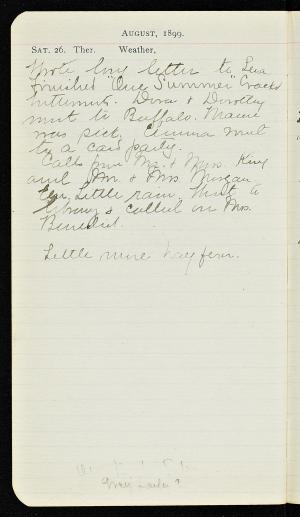 AUGUST, 1899.
SAT. 26. Ther. Weather,
Wrote long letter to
finished "One Summer"
Dora & Dorothy
went to Buffalo. Mame
was sick, Emma went
to a card party.
Calls from Mr. & Mrs. King
and Mr. & Mrs. Morgan
Little rain, Went to
library & called on Mrs.
Benedict.
Little more hay fever.